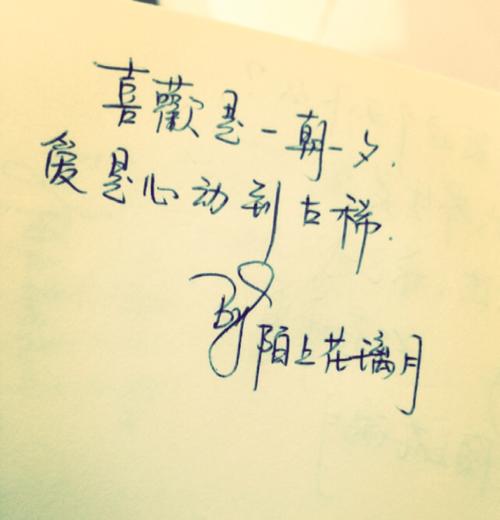 喜歡是一朝一夕.
愛是心动到古稀.
By 陌上花璃月